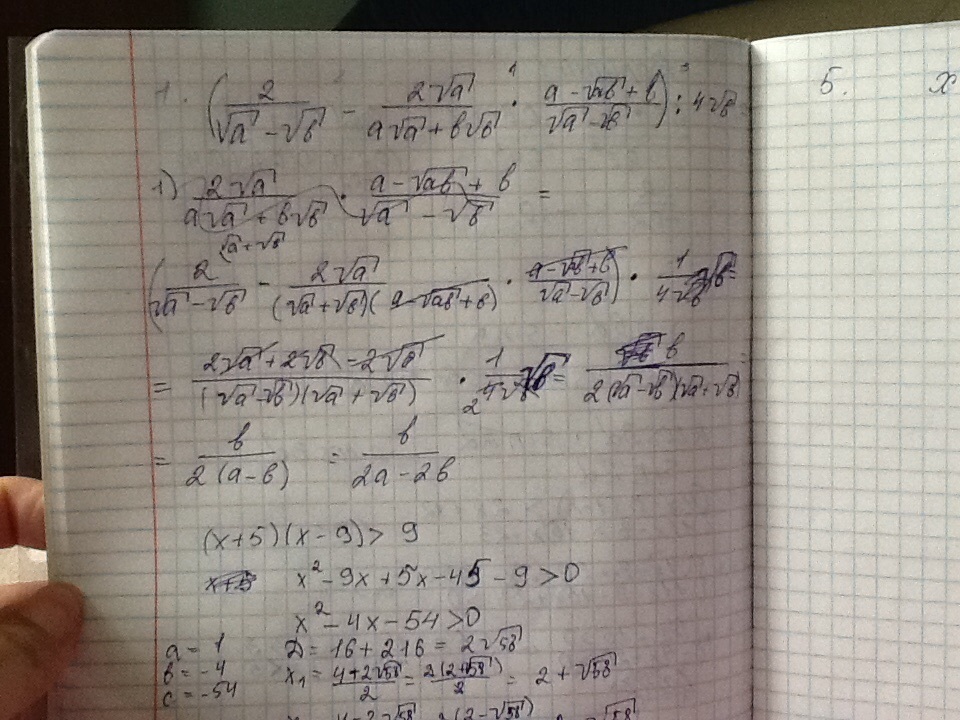 1. (2/(√a - √b) - 2√a/(a√a + b√b) · (a - √ab + b)/(√a - √b)) : 4√b
5. x
1) 2√a/(a√a + b√b) · (a - √ab + b)/(√a - √b) =
√a + √b
(2/(√a - √b) - 2√a/((√a + √b)(a - √ab + b)) · (a - √ab + b)/(√a - √b)) · 1/4√b =
= (2√a + 2√b - 2√a)/((√a - √b)(√a + √b)) · 1/4√b = b/(2(√a - √b)(√a + √b)) =
2
= b/(2(a - b)) = b/(2a - 2b)
(x+5)(x-9) > 9
x² - 9x + 5x - 45 - 9 > 0
x² - 4x - 54 > 0
a = 1 D = 16 + 216 = 2√58
b = -4 x₁ = (4+2√58)/2 = 2(2+√58)/2 = 2 + √58
c = -54